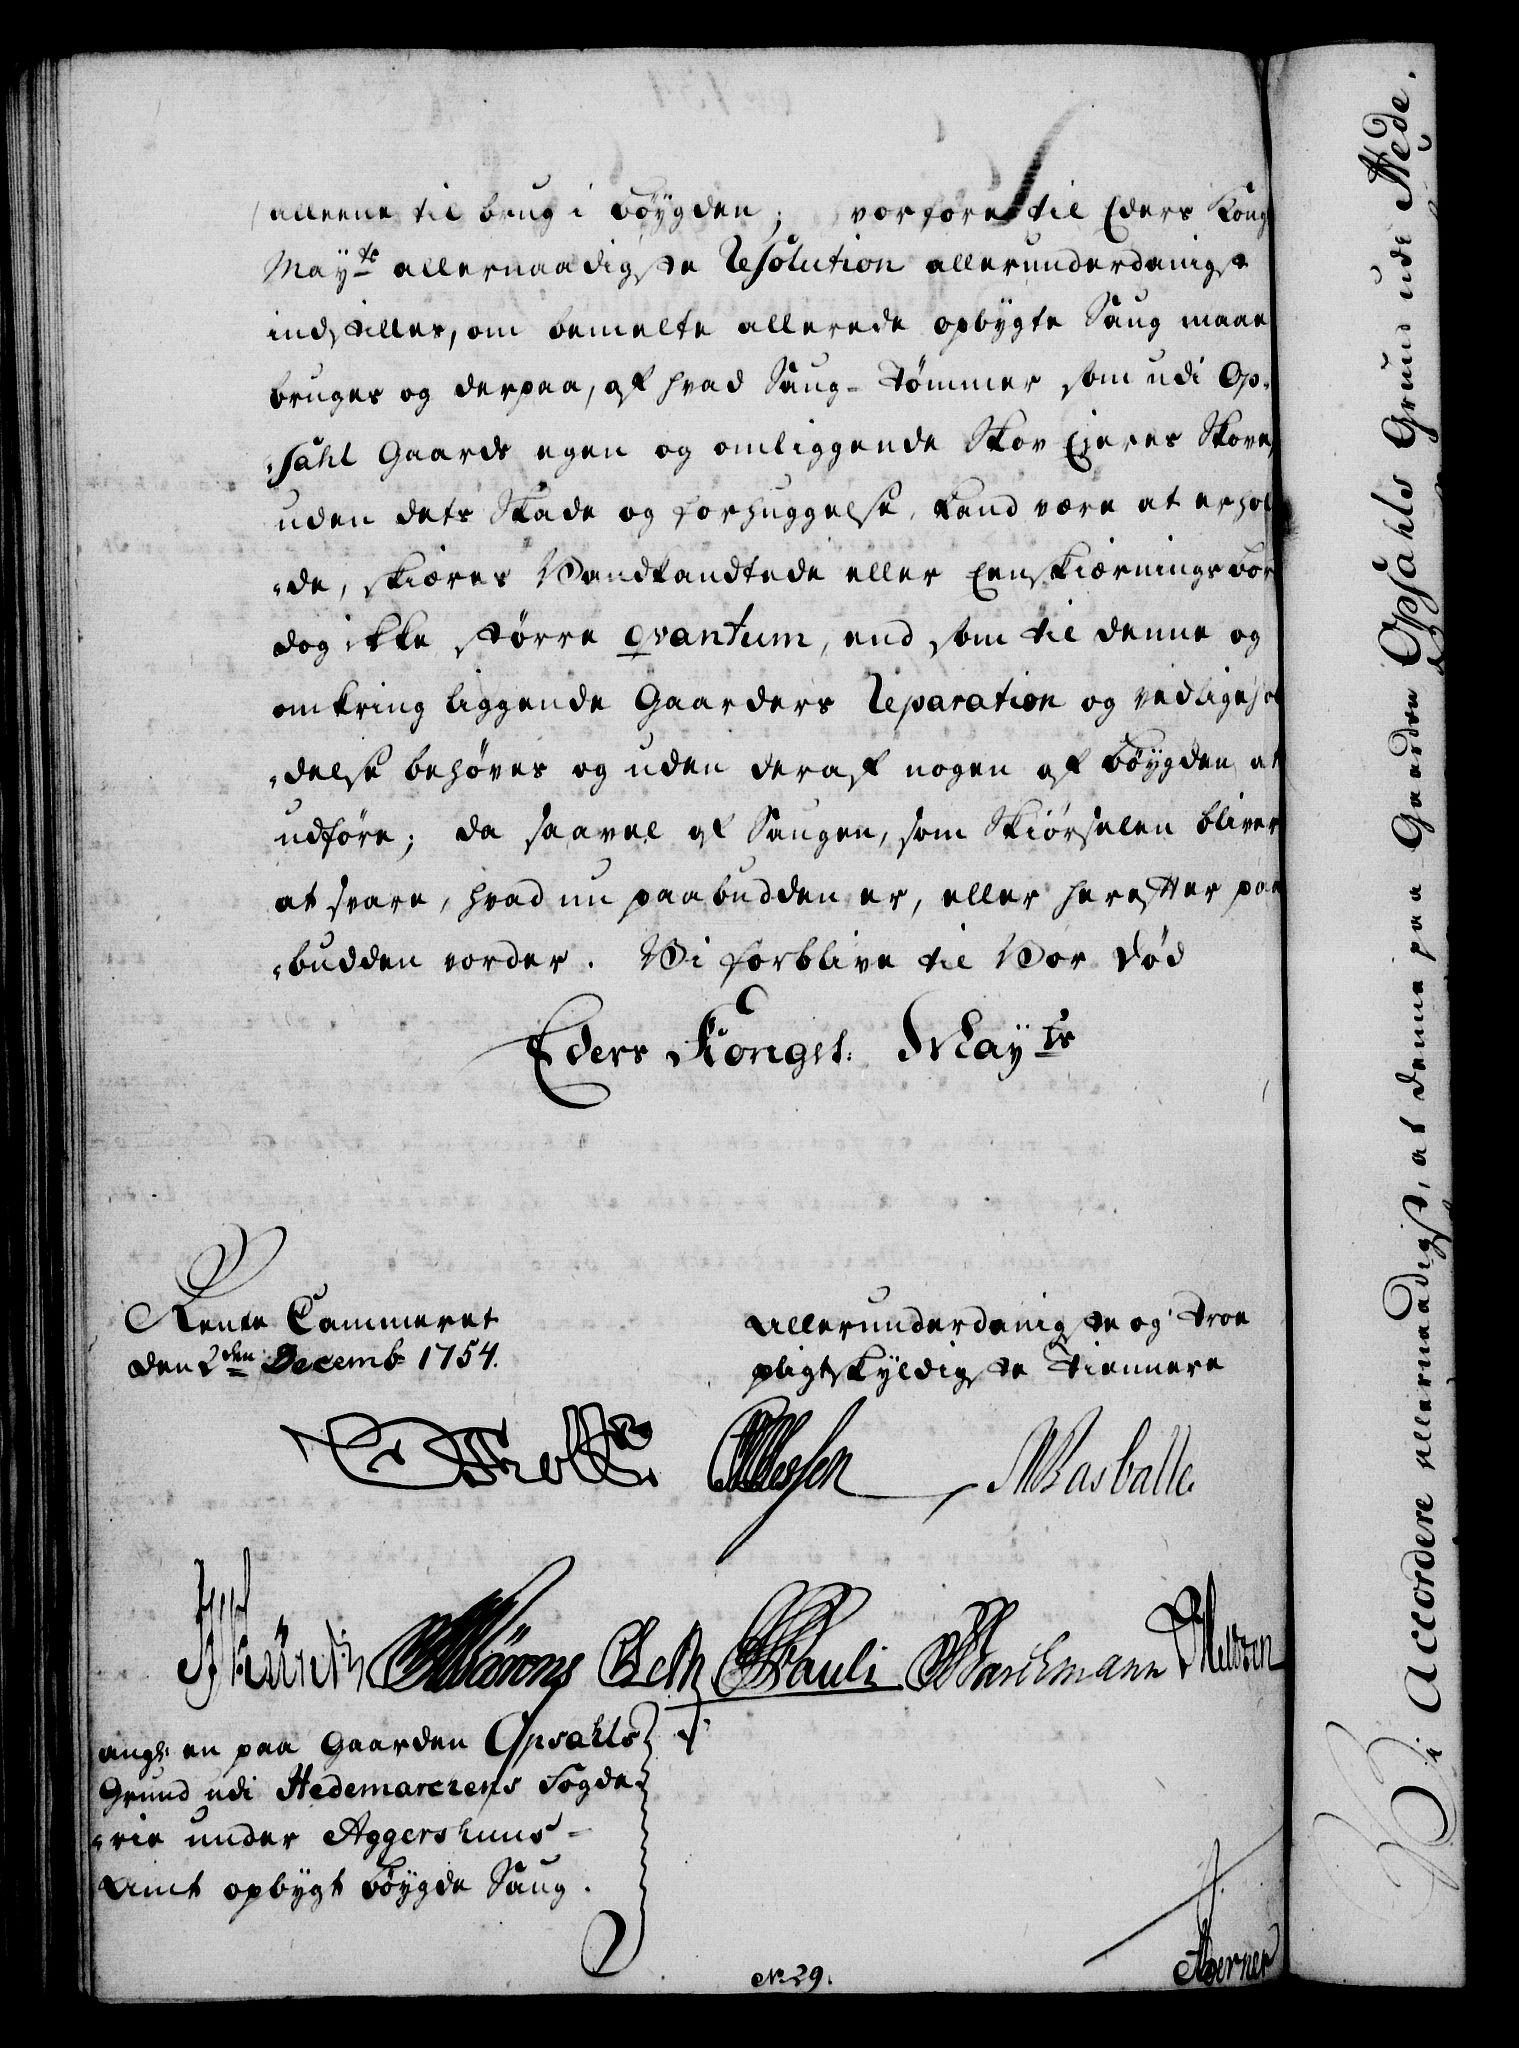 alleene til brug i Bøygden; vorfore til Eders Kong
May.ts allernaadigste Resolution allerunderdanigst
indstilles, om bemelte allerede opbygte Saug maae
bruges og derpaa, af hvad Saug-Tømmer som udi Op-
„sahl Gaards egen og omliggende Skov Ejeres Skove,
uden dets Skade og forhuggelse, kand være at erhol
„de, skiæres Vandkandtede eller Eenskiærnings bor
dog ikke større qvantum, end som til denne og
omkring liggende Gaarders Reparation og vedligehol
„delse behøves og uden deraf nogen af Bøygden at
udføre; da saavel af Saugen, som Skiørselen bliver
at svare, hvad nu paabudden er, eller herefter paa
„budden vorder. Vi forblive til Vor Død
Eders Kongel: May.ts
Rente Cammeret
den 2den Decemb: 1754.
allerunderdanigste og Troe
pligtskyldigste Tiennere
Holt
Wasballe
Beth Pauli Marckmann
ang: en paa Gaarden Opsahls
Grund udi Hedemarckens Fogde-
„rie under Aggershuus-
Amt opbygt Bøygde Saug.
No 29.
Berner
Vi Accordere allernaadigst, at denne paa Gaarden Opsahls Grund udi Nede.